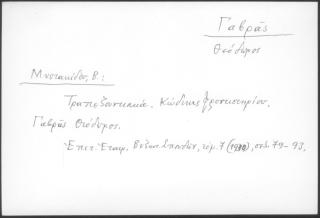 Γαβρᾶς
Θεόδωρος
Μυστακίδης, Β.:
Τραπεζουντιακά. Κώδικες Φροντιστηρίου.
Γαβρᾶς Θεόδωρος.
Ἐπετ. Ἑταιρ. Βυζαν. Σπουδῶν, τόμ. 7 (1930), σελ. 79-93.